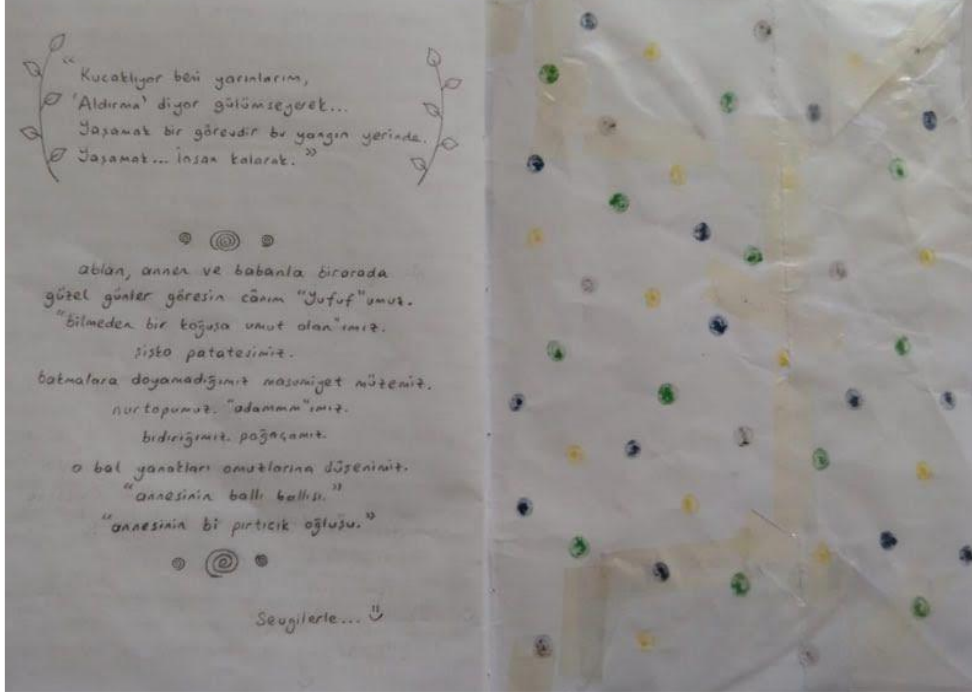 “Kucaklıyor beni yarınlarım,
‘Aldırma’ diyor gülümseyerek...
Yaşamak bir görevdir bu yangın yerinde.
Yaşamak... İnsan kalarak.”
ablan, annen ve babanla birarada
güzel günler göresin cânım “Yufuf”umuz.
“bilmeden bir koğuşa umut olan”ımız.
şişko patatesimiz.
bakmalara doyamadığımız masumiyet müzemiz.
nurtopumuz. “adammm”ımız.
bıdırığımız. poğaçamız.
o bal yanakları omuzlarına düşenimiz.
“annesinin ballı ballısı.”
“annesinin bi pırtıcık oğluşu.”
Sevgilerle...